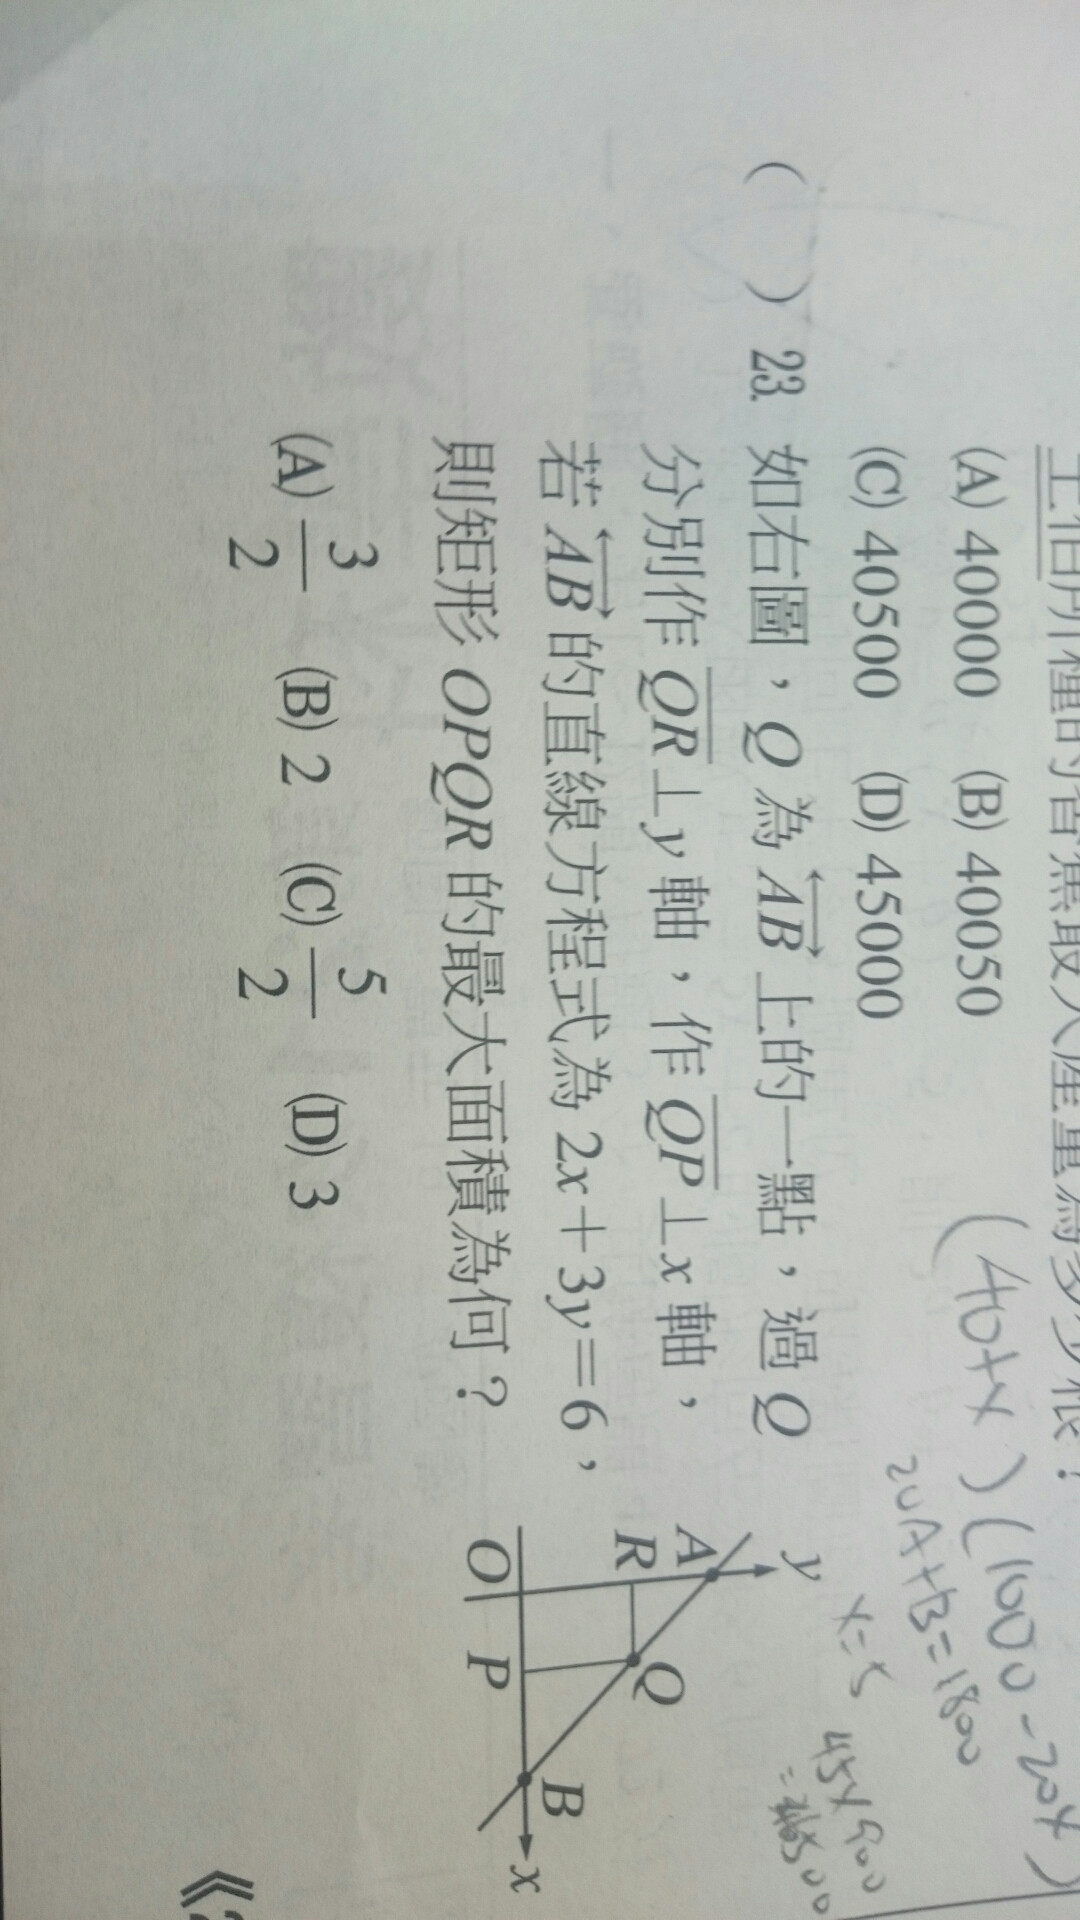 (A) 40000 (B) 40050
(C) 40500 (D) 45000
(40+x)(1000-20x)
20A+B=1800
x=5
45×900
( ) 23. 如右圖，Q 為 AB 上的一點，過 Q
分別作 QR⊥y 軸，作 QP⊥x 軸，
若 AB 的直線方程式為 2x+3y=6，
則矩形 OPQR 的最大面積為何？
(A) 3/2 (B) 2 (C) 5/2 (D) 3
y
A
R
Q
O
P
B
x